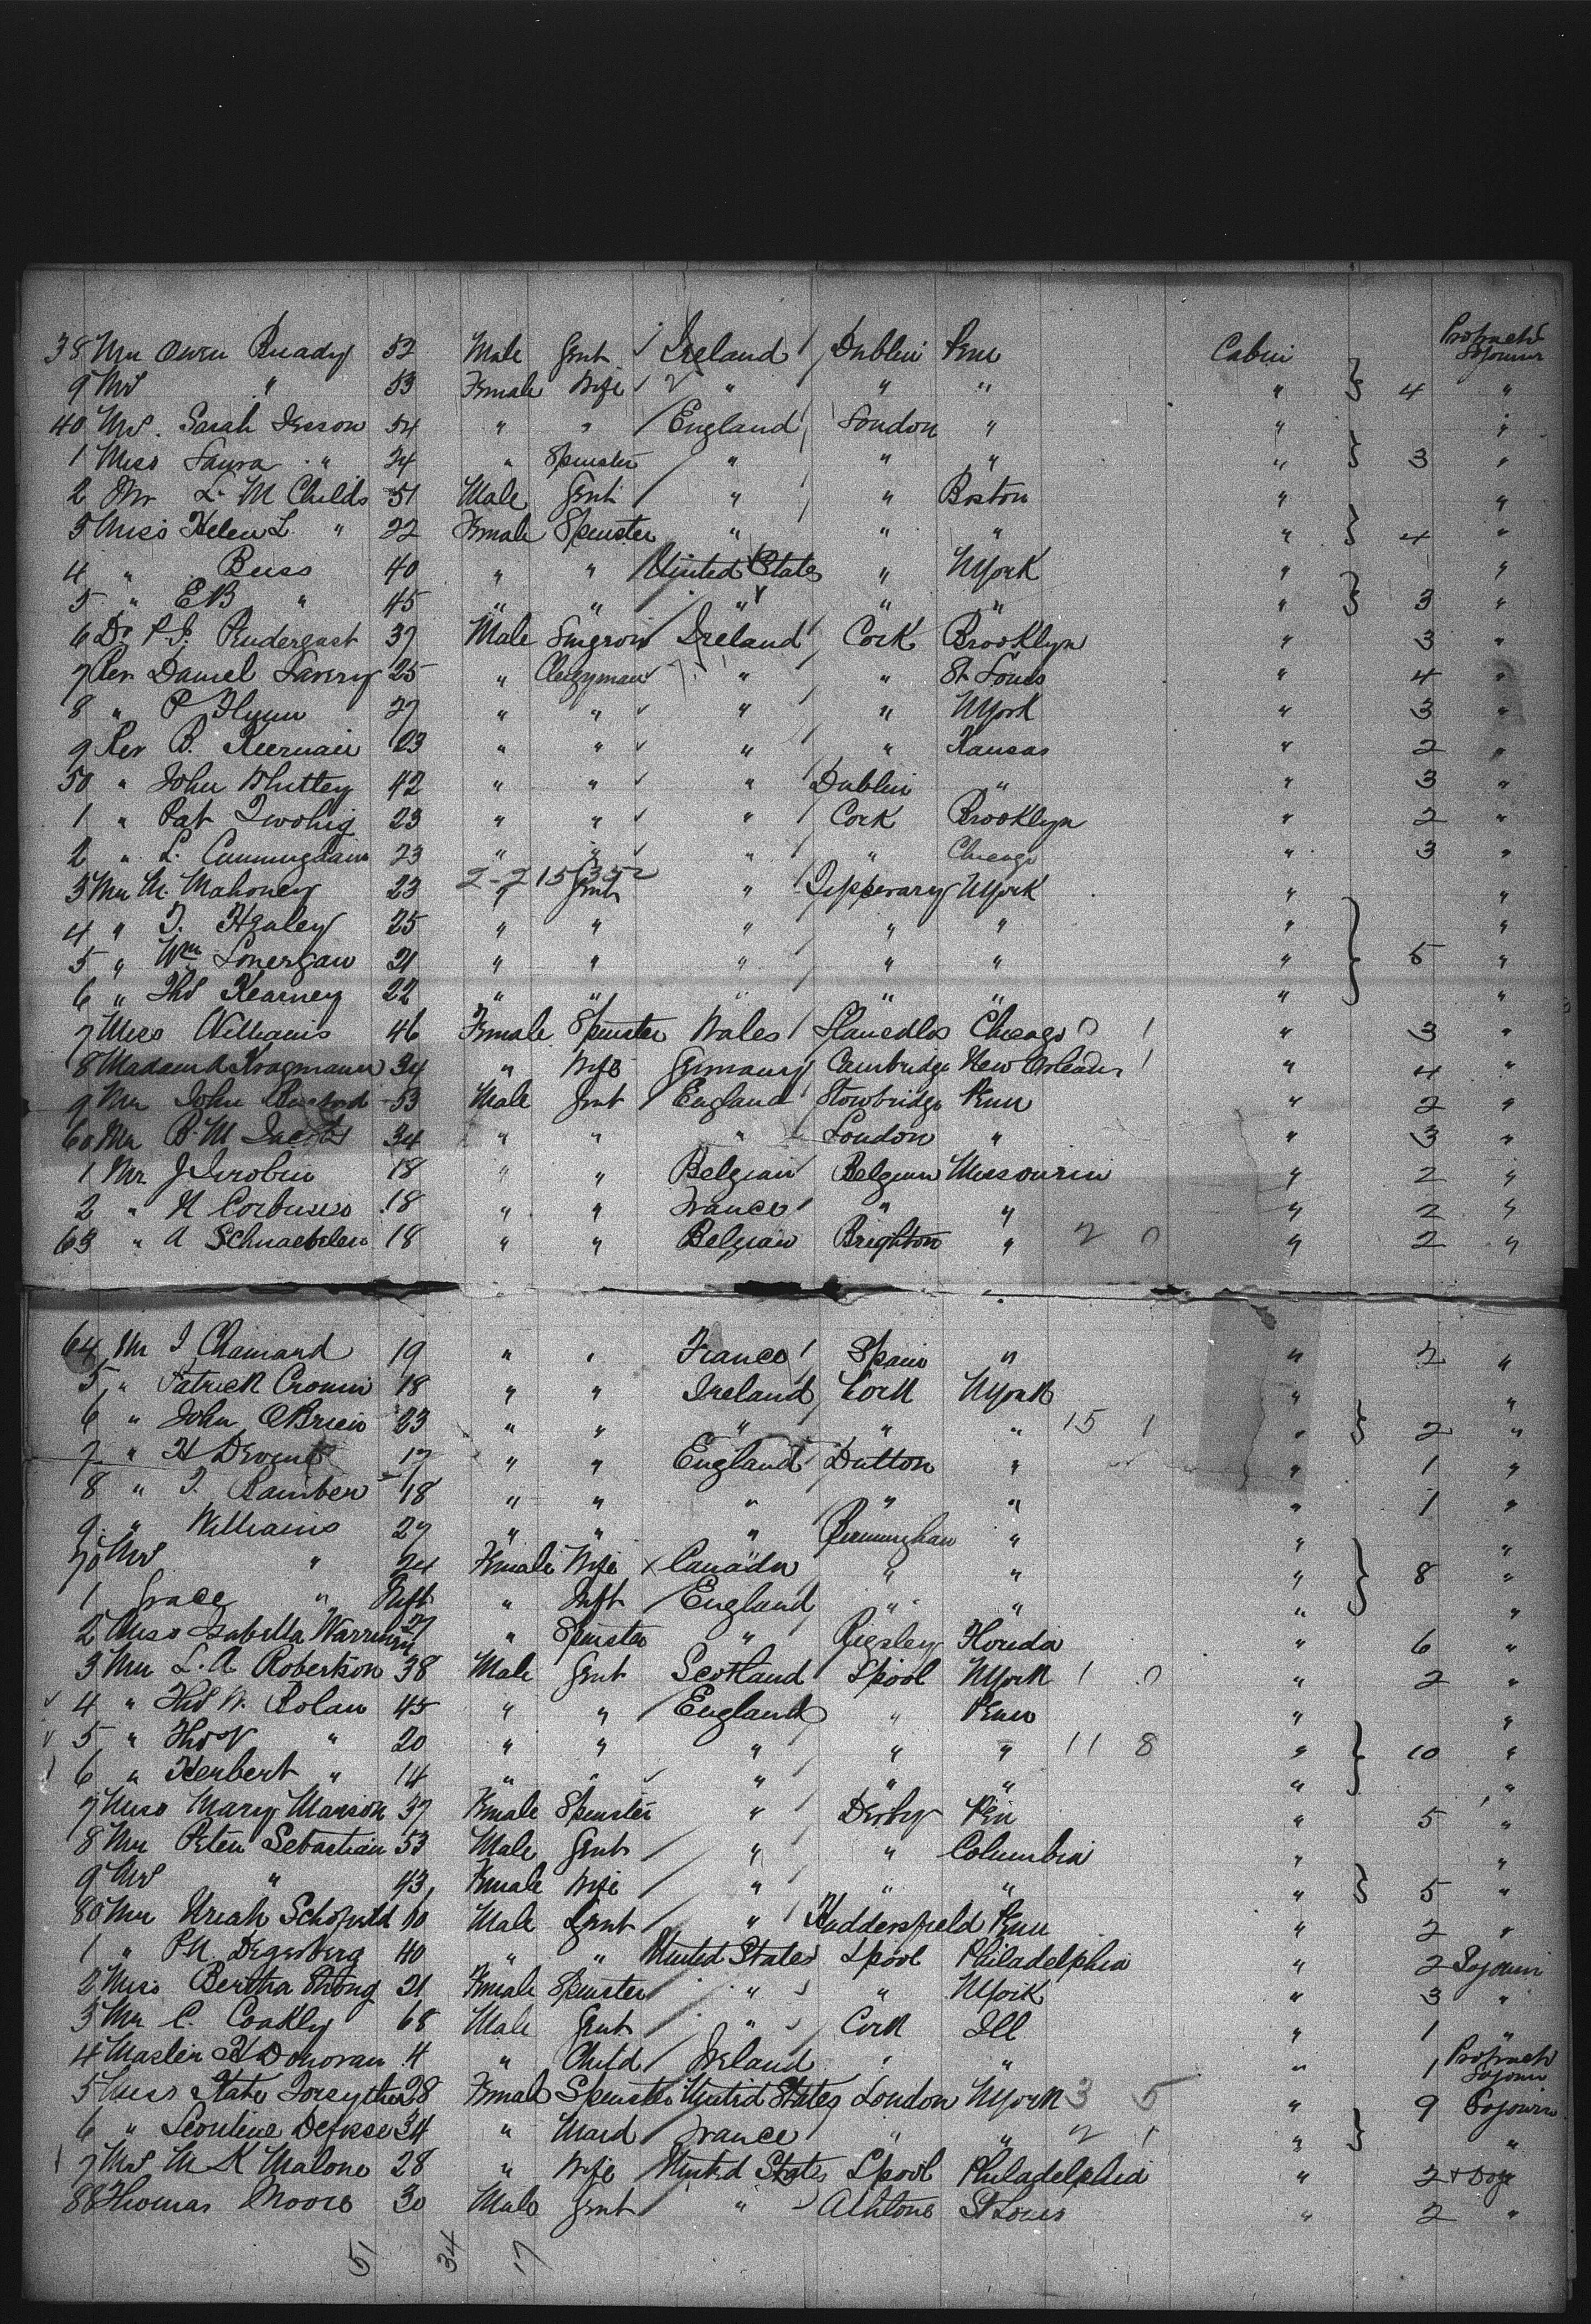 38 Mr Owen Bready 52 Male Gent Ireland Dublin Penn Cabin Protracted Sojourn
9 Mrs " 53 Female Wife " " " " 4 "
40 Mrs. Sarah Isson 54 " " England London " " "
1 Miss Laura " 24 " Spinster " " " " 3 "
2 Mr L. M Childs 51 Male Gent " " Boston " "
3 Miss Helen L. " 22 Female Spinster " " " " 4 "
4 " Buss 40 " " United States " NYork " "
5 " E B " 45 " " " " " " 3 "
6 Dr P. J. Prudergast 37 Male Surgeon Ireland Cork Brooklyn " 3 "
7 Rev Daniel Lavery 25 " Clergyman " " St Louis " 4 "
8 " P Flynn 27 " " " " NYork " 3 "
9 Rev B. Keernair 23 " " " " Kansas " 2 "
50 " John Whittey 42 " " " Dublin " " 3 "
1 " Pat Twohig 23 " " " Cork Brooklyn " 2 "
2 " L. Cunningham 23 " " " " Chicago " 3 "
3 Mr M. Mahoney 23 " Gent " Tipperary NYork " "
4 " T. Healey 25 " " " " " " "
5 " Wm Lonergan 21 " " " " " " 5 "
6 " Thos Kearney 22 " " " " " " "
7 Miss Williams 46 Female Spinster Wales Chicago 0 1 " 3 "
8 Madam A Kragmann 34 " Wife Germany Cambridge New Orleans 1 " 4 "
9 Mr John 53 Male Gent England Stowbridge Penn " 2 "
60 Mr B. M Jacobs 34 " " " London " " 3 "
1 Mr J Jerobin 18 " " Belgian Belgium Missourin " 2 "
2 " N Corbusio 18 " " France " " " 2 "
63 " A Schnaebelen 18 " " Belgian Brighton " 2 0 " 2 "
64 Mr J Chamand 19 " " France Spain " " 2 "
5 " Patrick Cronin 18 " " Ireland Cork NYork " "
6 " John OBrien 23 " " " " " 15 1 " 2 "
7 " H Devine 17 " " England Dutton " " 1 "
8 " T. Ramben 18 " " " " " " 1 "
9 " Williams 27 " " " Birmingham " " "
70 Mrs " 24 Female Wife Canada " " " 8 "
1 Grace " Inft " Inft England " " " "
2 Miss Isabella 27 " Spinster " Florida " 6 "
3 Mr L. A Robertson 38 Male Gent Scotland Lpool NYork 1 0 " 2 "
4 " Thos W. Bolan 45 " " England " Penn " "
5 " Thos V " 20 " " " " " 11 8 " 10 "
6 " Herbert " 14 " " " " " " "
7 Miss Mary Manson 37 Female Spinster " Derby Pen " 5 "
8 Mr Peter Sebastian 53 Male Gent " " Columbia " "
9 Mrs " 43 Female Wife " " " " 5 "
80 Mr Uriah Schofield 60 Male Gent " Huddersfield Penn " 2 "
1 " P.N. Degerberg 40 " " United States Lpool Philadelphia " 2 Sojourn
2 Miss Bertha Strong 21 Female Spinster " " NYork " 3 "
3 Mr C. Coakly 68 Male Gent " Cork Ill " 1 "
4 Master H Donovan 4 " Child Ireland " " " 1 Protract Sojourn
5 Miss Kate Forsythe 28 Female Spinster United States London NYork 3 5 " 9 Sojourn
6 " Leontine Defosse 34 " Maid France " " 2 1 " "
7 Mrs M K Malone 28 " Wife United States Lpool Philadelphia " 2 + Dog
88 Thomas Moore 30 Male Gent " Athlone St Louis " 2 "
51 34 17